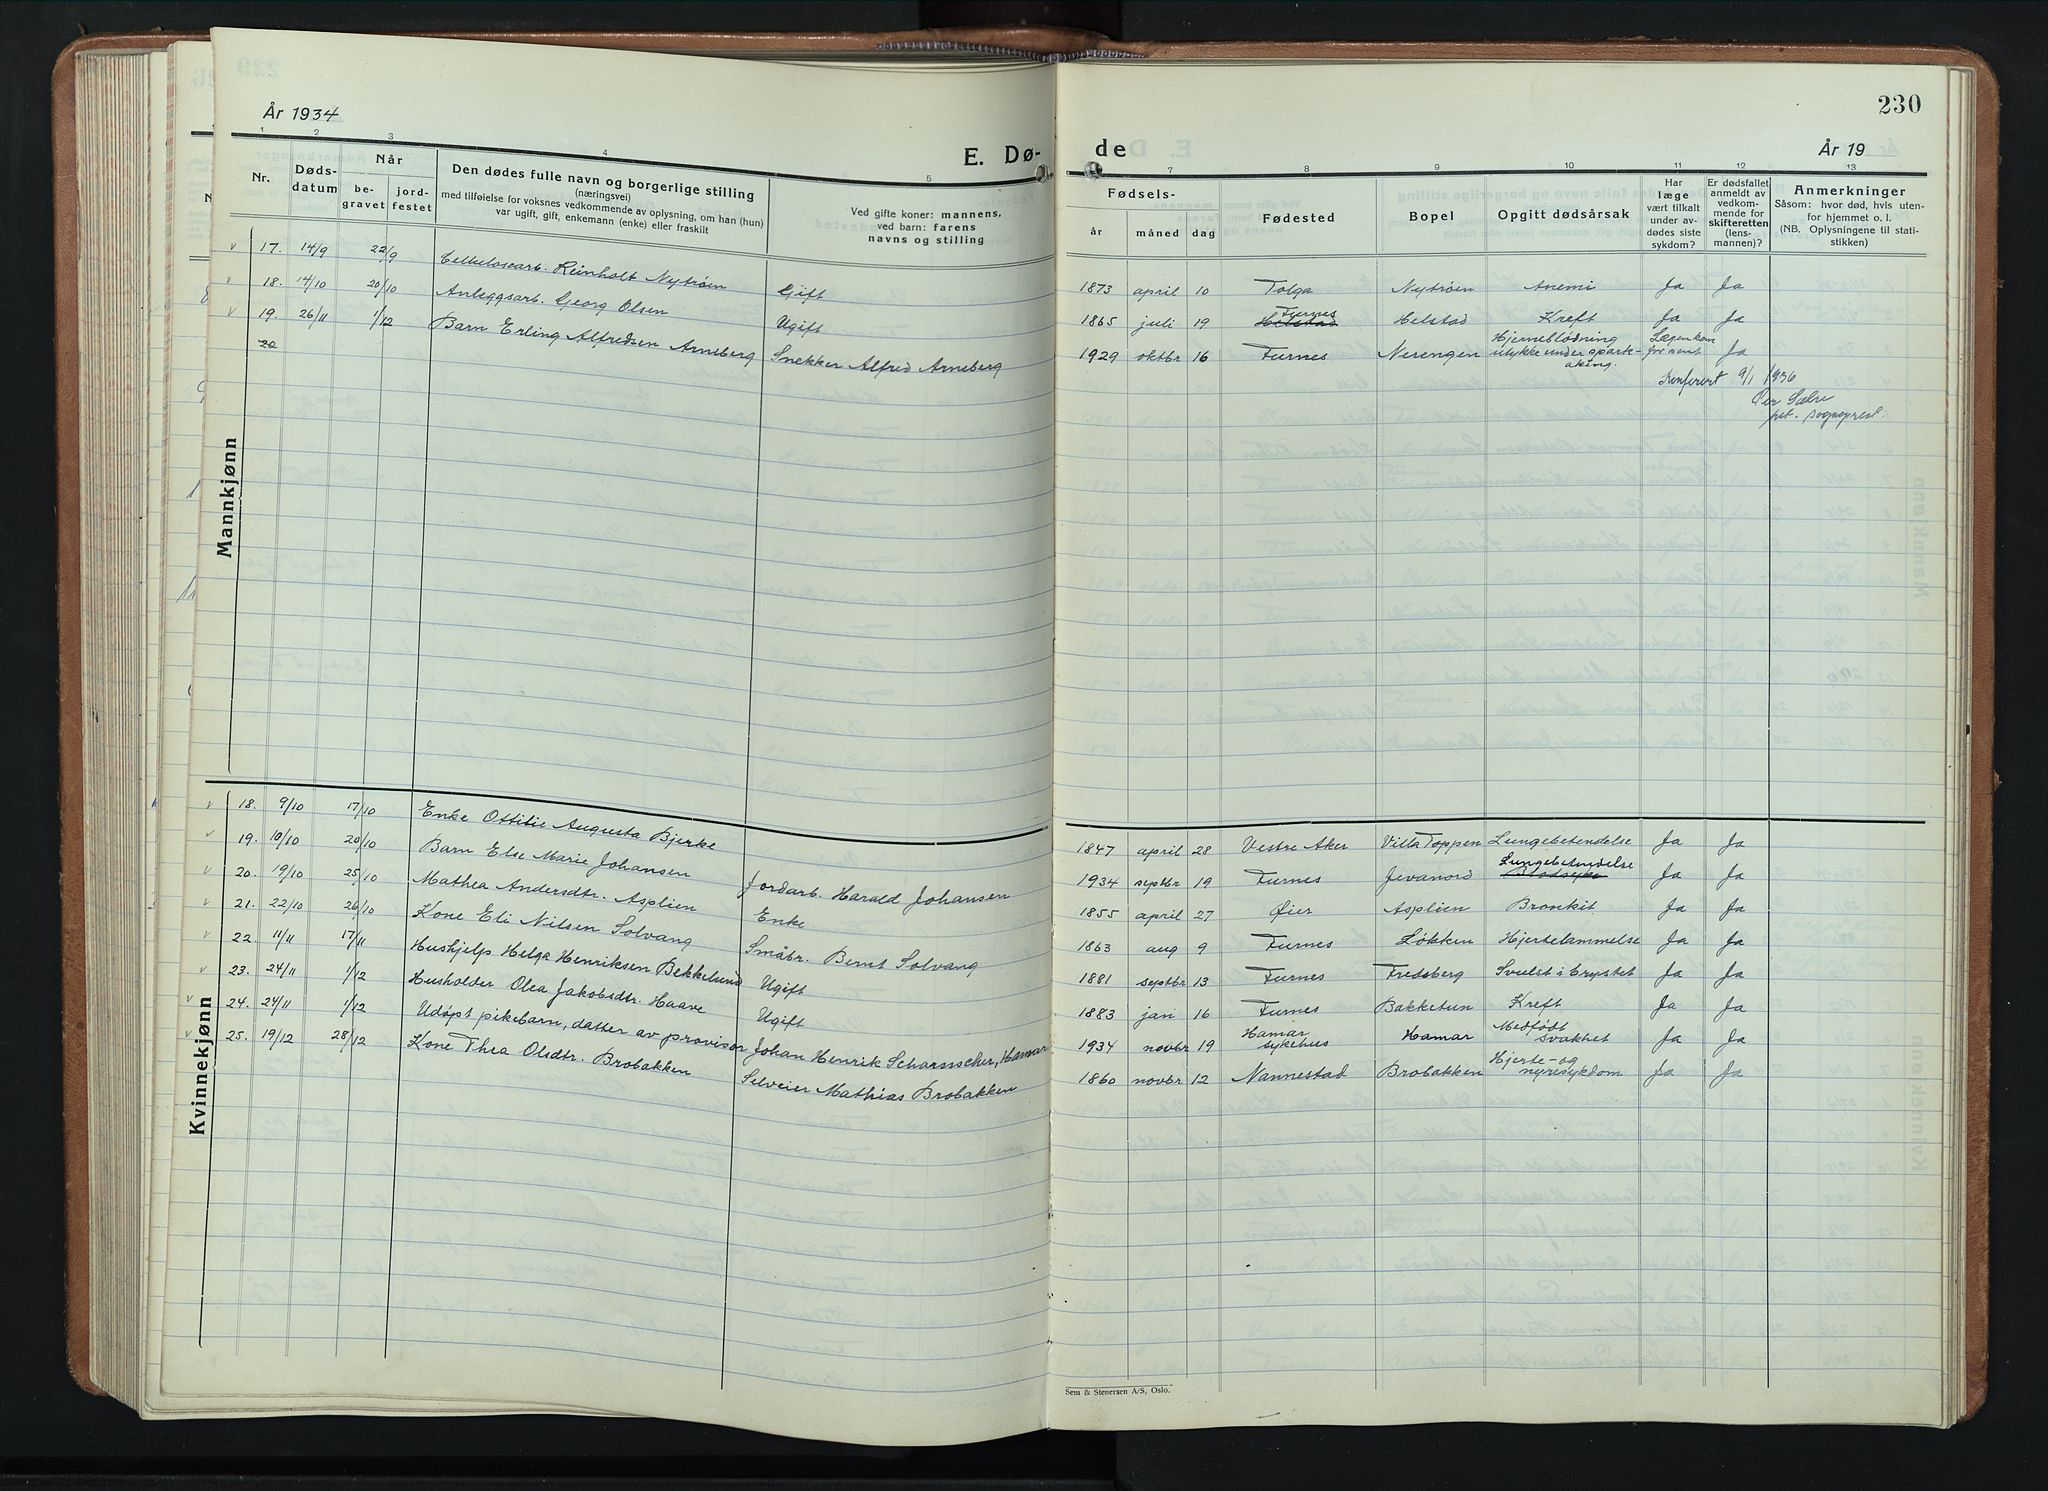 År 1934
E. Dø-
1 2 3 4 5
Nr.
Døds-
datum
Når
be-
gravet
jord-
festet
Den dødes fulle navn og borgerlige stilling
(næringsvei)
med tilføielse for voksnes vedkommende av oplysning, om han (hun)
var ugift, gift, enkemann (enke) eller fraskilt
Ved gifte koner: mannens,
ved barn: farens
navns og stilling
Mannkjønn
17. 14/9 22/9 Cellulosearb. Reinholt Nytrøen Gift
18. 14/10 20/10 Anleggsarb. Georg Olsen Ugift
19. 26/11 1/12 Barn Erling Alfredsen Arneberg Snekker Alfred Arneberg
20
Kvinnekjønn
18. 9/10 17/10 Enke Ottilie Augusta Bjerke
19. 10/10 20/10 Barn Else Marie Johansen Jordarb. Harald Johansen
20. 19/10 25/10 Mathea Andersdtr. Asplien Enke
21. 22/10 26/10 Kone Eli Nilsen Solvang Småbr. Bernt Solvang
22. 11/11 17/11 Hushjelp Helga Henriksen Bekkelund Ugift
23. 24/11 1/12 Husholder Olea Jakobsdtr. Haave Ugift
24. 24/11 1/12 Udøpt pikebarn, datter av provisor Johan Henrik Scharsscher, Hamar
25. 19/12 28/12 Kone Thea Olsdtr. Brobakken Selveier Mathias Brobakken
230
de
År 19
7 8 9 10 11 12 13
Fødsels-
år måned dag
Fødested
Bopel
Opgitt dødsårsak
Har
læge
vært tilkalt
under av-
dødes siste
sykdom?
Er dødsfallet
anmeldt av
vedkom-
mende for
skifteretten
(lens-
mannen)?
Anmerkninger
Såsom: hvor død, hvis uten-
for hjemmet o. l.
(NB. Oplysningene til stati-
stikken)
1873 april 10 Tolga Nytrøen Anemi Ja Ja
Furnes
1865 juli 19 Helstad Helstad Kreft Ja Ja
Hjerneblødning Lægen kom
1929 oktbr 16 Furnes Nerengen ulykke under spark- for sent Ja
aking.
Konferert 9/1 1936
Per Sælre
pst. sogneprest.
1847 april 28 Vestre Aker Villa Toppen Lungebetendelse Ja Ja
Lungebetendelse
1934 septbr 19 Furnes Jevanord Blodsyke Ja Ja
1855 april 27 Øier Asplien Bronkit Ja Ja
1863 aug 9 Furnes Løkken Hjertelammelse Ja Ja
1881 septbr 13 Furnes Fredsberg Svulst i brystet Ja Ja
1883 jan 16 Furnes Bakketun Kreft Ja Ja
Hamar Medfødt
1934 novbr 19 sykehus Hamar svakhet Ja Ja
Hjerte- og
1860 novbr 12 Nannestad Brobakken nyresykdom Ja Ja
Sem & Stenersen A/S, Oslo.